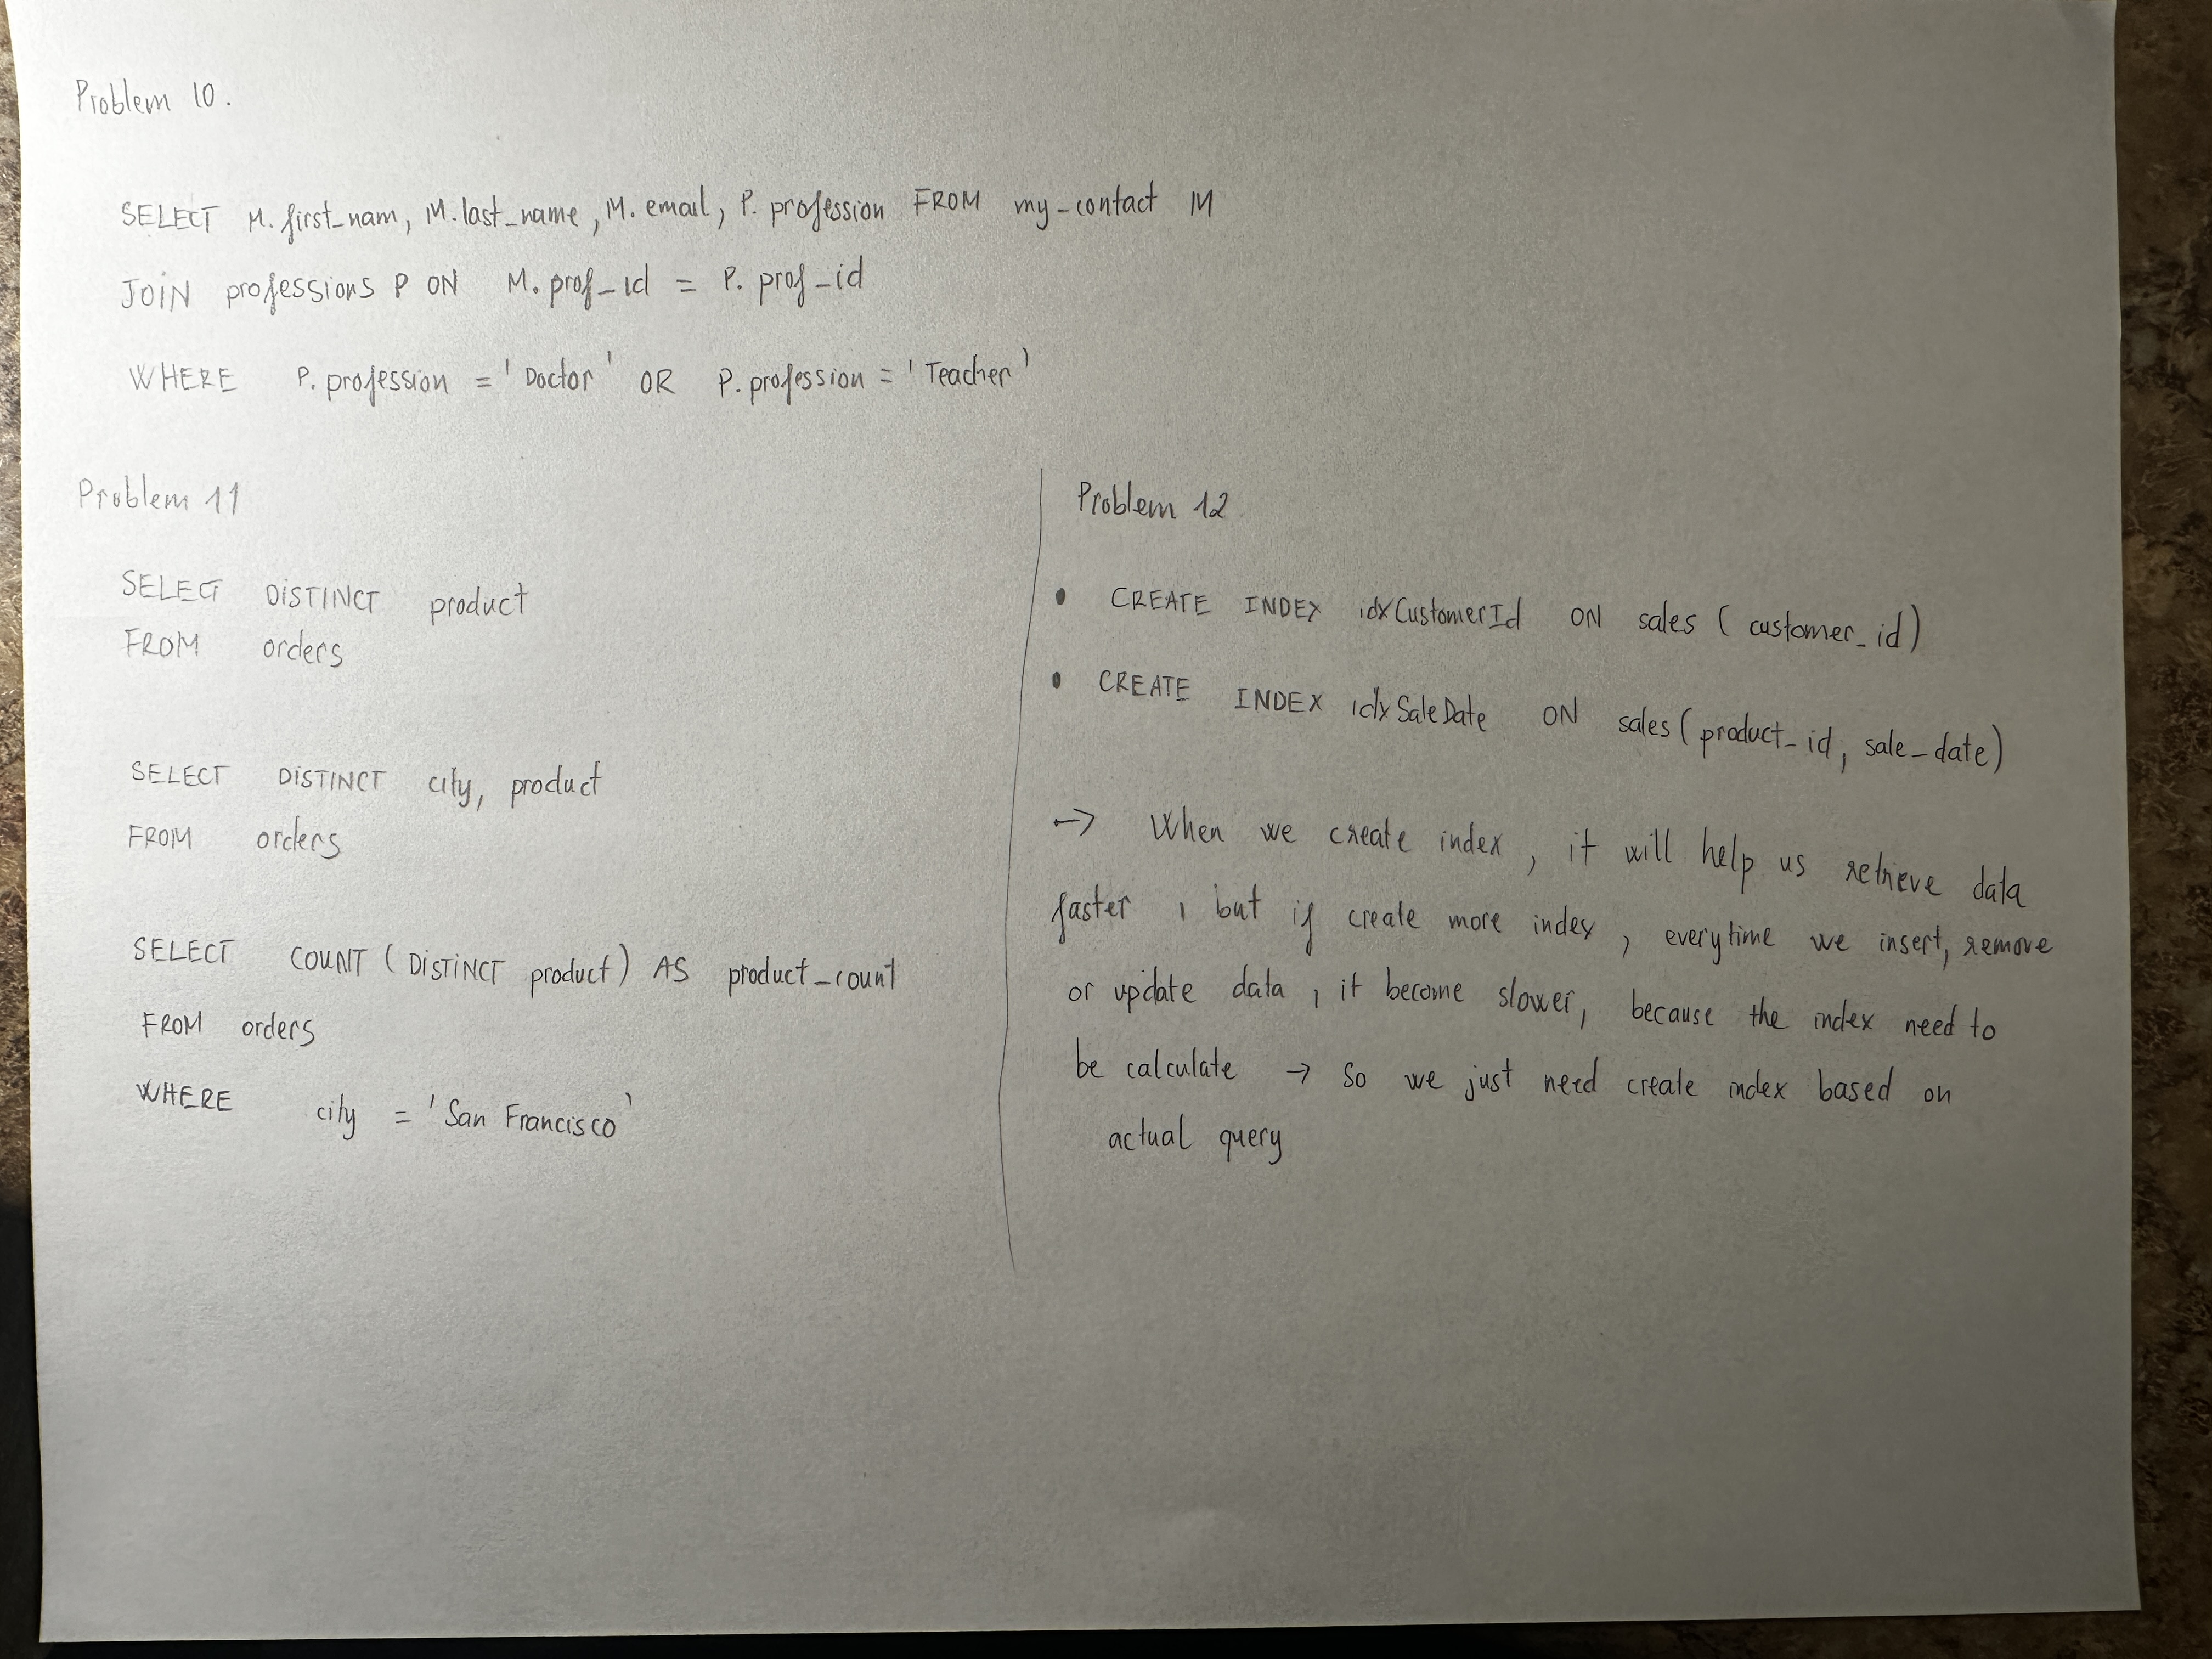 Problem 10.
SELECT M.first_nam, M.last_name, M.email, P.profession FROM my_contact M
JOIN professions P ON M.prof_id = P.prof_id
WHERE P.profession = 'Doctor' OR P.profession = 'Teacher'
Problem 11
SELECT DISTINCT product
FROM orders
SELECT DISTINCT city, product
FROM orders
SELECT COUNT (DISTINCT product) AS product_count
FROM orders
WHERE city = 'San Francisco'
Problem 12
• CREATE INDEX idxCustomerId ON sales (customer_id)
• CREATE INDEX idxSaleDate ON sales(product_id, sale_date)
→ When we create index, it will help us retrieve data
faster, but if create more index, everytime we insert, remove
or update data, it become slower, because the index need to
be calculate → So we just need create index based on
actual query